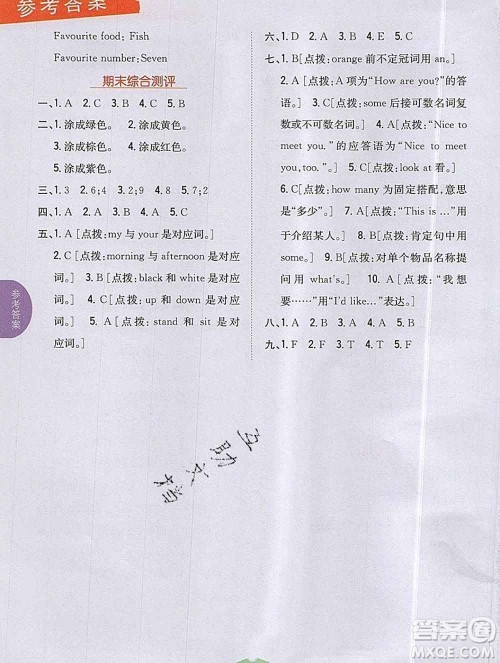 参考答案
Favourite food: Fish
Favourite number: Seven
期末综合测评
一、1. A  2. C  3. B  4. A  5. B
二、1. 涂成绿色。  2. 涂成黄色。
3. 涂成棕色。  4. 涂成红色。
5. 涂成紫色。
三、1. 3  2. 6;4  3. 9  4. 8  5. 7;2
四、1. A  2. A  3. B  4. A  5. A
五、1. A[点拨:my 与 your 是对应词。]
2. C[点拨:morning 与 afternoon 是对应
词。]  3. B[点拨:black 和 white 是对应
词。]  4. A[点拨:up 和 down 是对应
词。]  5. A[点拨:stand 和 sit 是对
应词。]
参考答案
六、1. D  2. A  3. B  4. E  5. C
七、1. B[点拨:orange 前不定冠词用 an。]
2. A[点拨:A 项为“How are you?”的答
语。]  3. C[点拨:some 后接可数名词复
数或不可数名词。]  4. B[点拨:“Nice to
meet you.”的应答语为“Nice to meet
you, too.”。]  5. C[点拨:look at 看。]
6. C[点拨:how many 为固定搭配,意思
是“多少”。]  7. A[点拨:“This is …”用
于介绍某人。]  8. B[点拨:肯定句中用
some。]  9. B[点拨:对单个物品名称提
问用 what's。]  10. A[点拨:“我想
要……”用“I'd like…”表达。]
八、1. F  2. A  3. A  4. A  5. A
九、1. F  2. F  3. T  4. T  5. F
答案圈
MXQE.COM